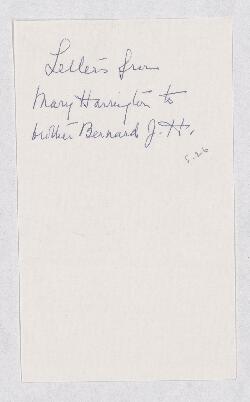 Letters from
Mary Harrington to
brother Bernard J. H.
5.26